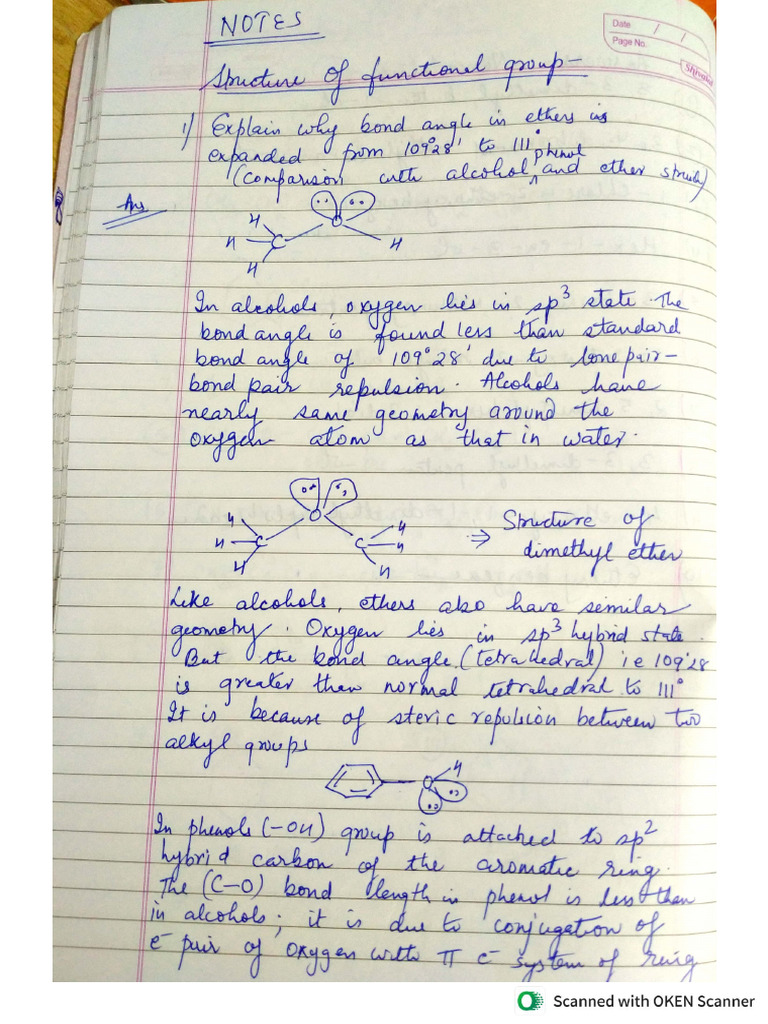 NOTES
Date / /
Page No.
Structure of functional group -
1) Explain why bond angle in ethers is
expanded from 109°28' to 111°
(comparison with alcohol, phenol and ether structure)
Ans.
H
H C O H
H
In alcohols, oxygen lies in sp³ state. The
bond angle is found less than standard
bond angle of 109°28' due to lone pair-
bond pair repulsion. Alcohols have
nearly same geometry around the
oxygen atom as that in water.
O
H H
H C C H ⇒ Structure of
H H dimethyl ether
Like alcohols, ethers also have similar
geometry. Oxygen lies in sp³ hybrid state.
But the bond angle (tetrahedral) i.e 109°28
is greater than normal tetrahedral to 111°
It is because of steric repulsion between two
alkyl groups
O H
In phenols (-OH) group is attached to sp²
hybrid carbon of the aromatic ring.
The (C-O) bond length in phenol is less than
in alcohols; it is due to conjugation of
e⁻ pair of oxygen with π e⁻ system of ring
Scanned with OKEN Scanner